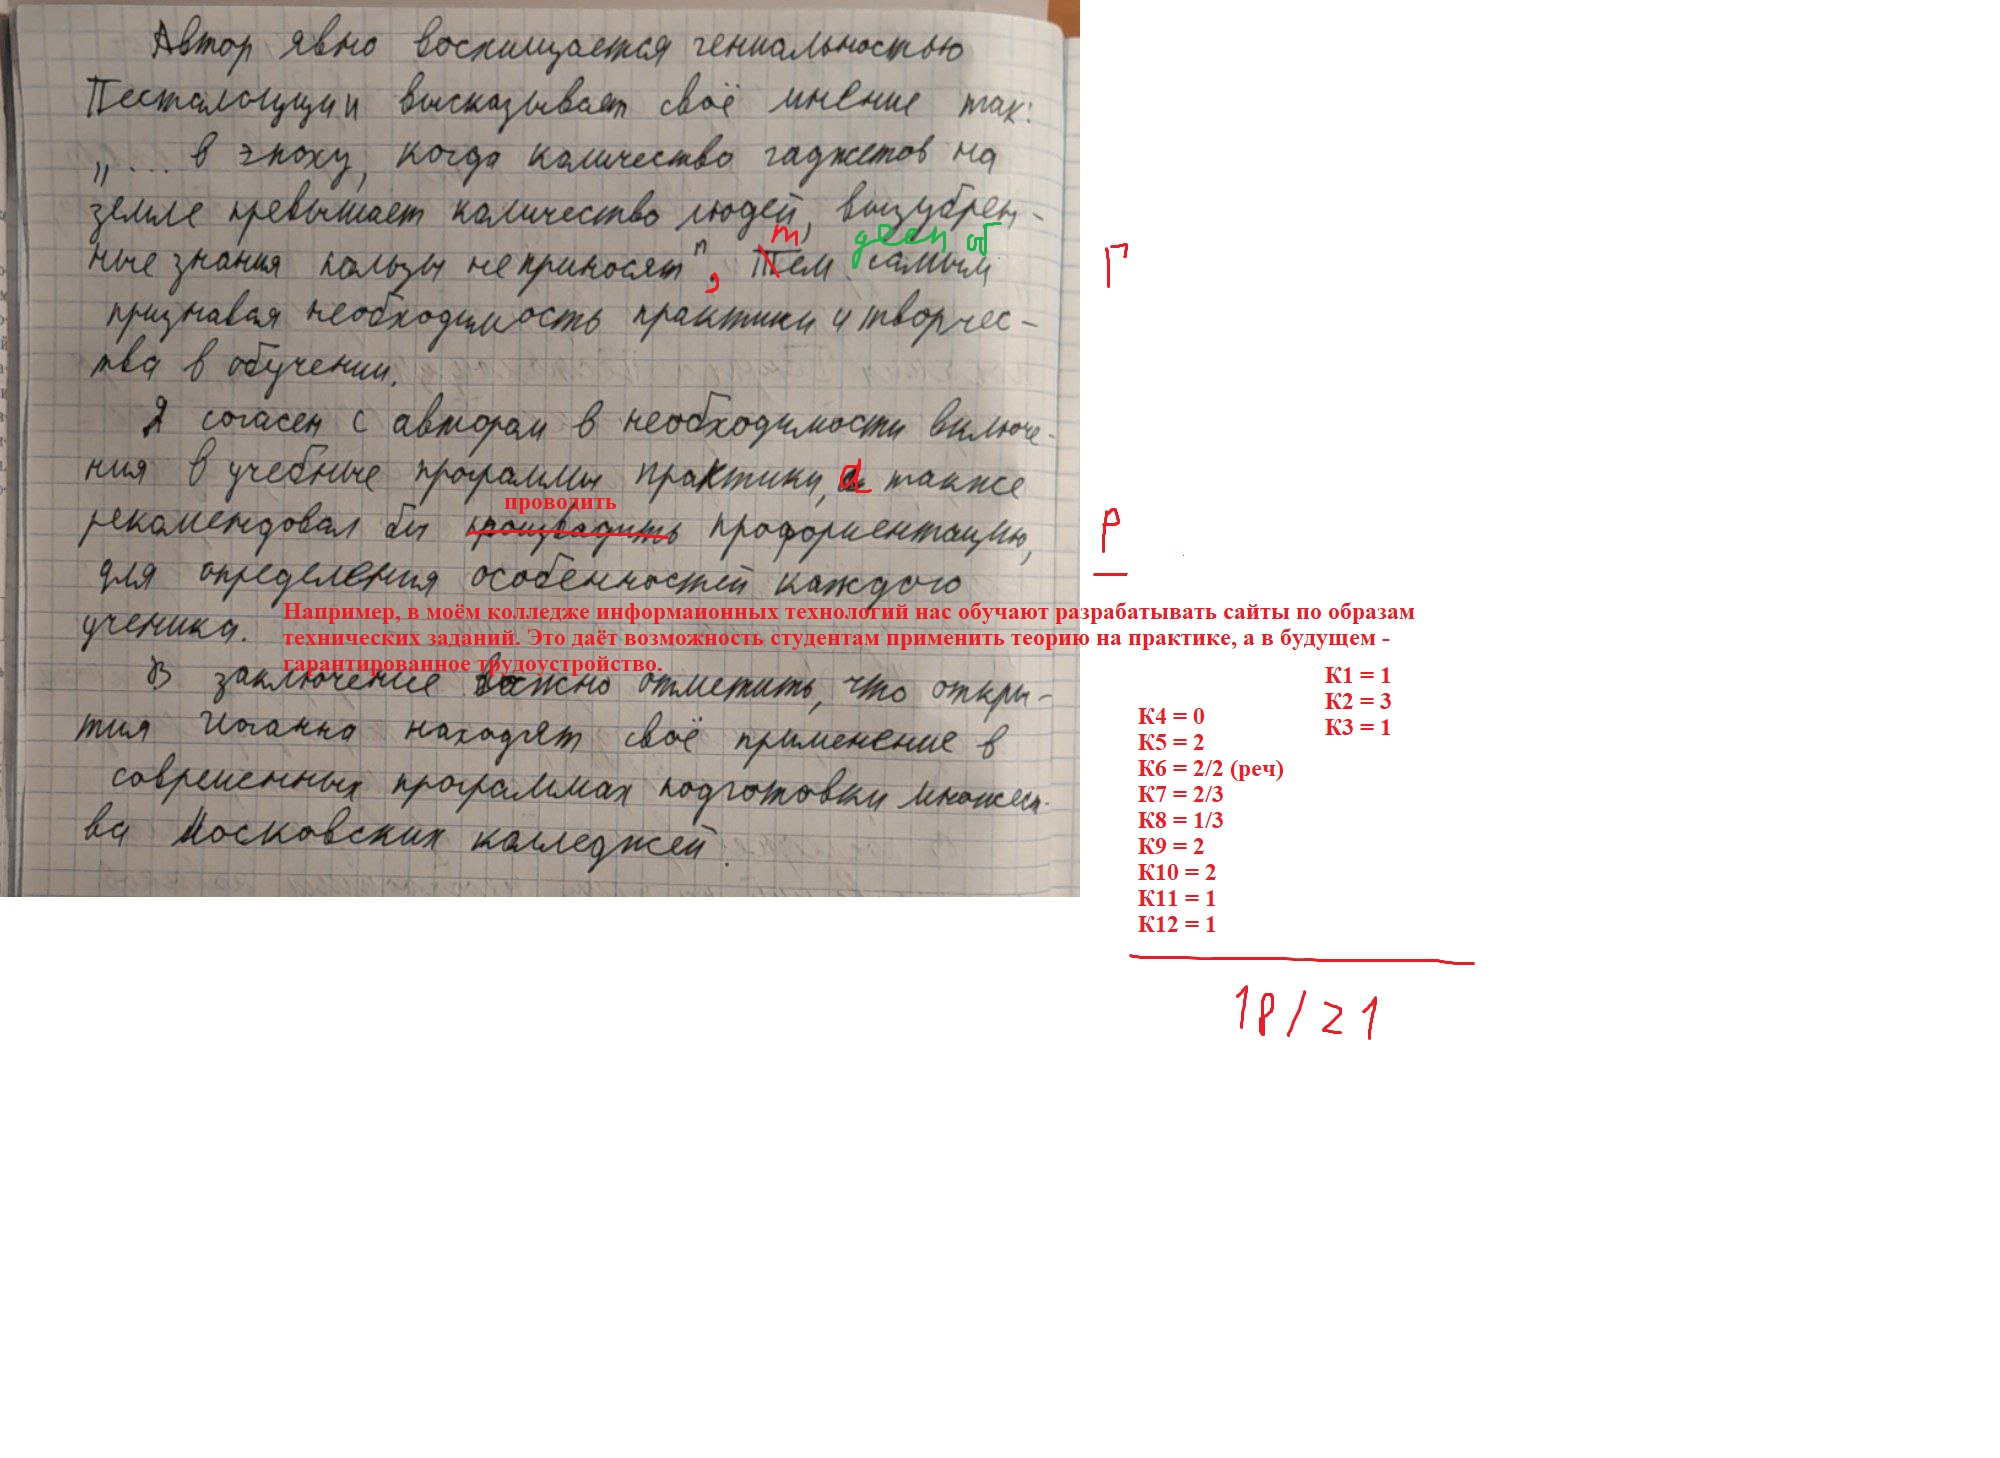 Автор явно восхищается гениальностью
Песталоцции высказывает своё мнение так:
„... в эпоху, когда количество гаджетов на
земле превышает количество людей, вызубрен-
т дееп об
ные знания пользы не приносят", Тем самым
Г
признавая необходимость практики и творчес-
тва в обучении.
Я согасен с автором в необходимости включе-
ния в учебные программы практики, а также
проводить
рекомендовал бы производить профориентацию,
Р
для определения особенностей каждого
ученика.
Например, в моём колледже информаионных технологий нас обучают разрабатывать сайты по образам
технических заданий. Это даёт возможность студентам применить теорию на практике, а в будущем -
гарантированное трудоустройство.
В заключение важно отметить, что откры-
тия Иоганна находят своё применение в
современных программах подготовки множест-
ва Московских колледжей.
К1 = 1
К2 = 3
К3 = 1
К4 = 0
К5 = 2
К6 = 2/2 (реч)
К7 = 2/3
К8 = 1/3
К9 = 2
К10 = 2
К11 = 1
К12 = 1
18/21